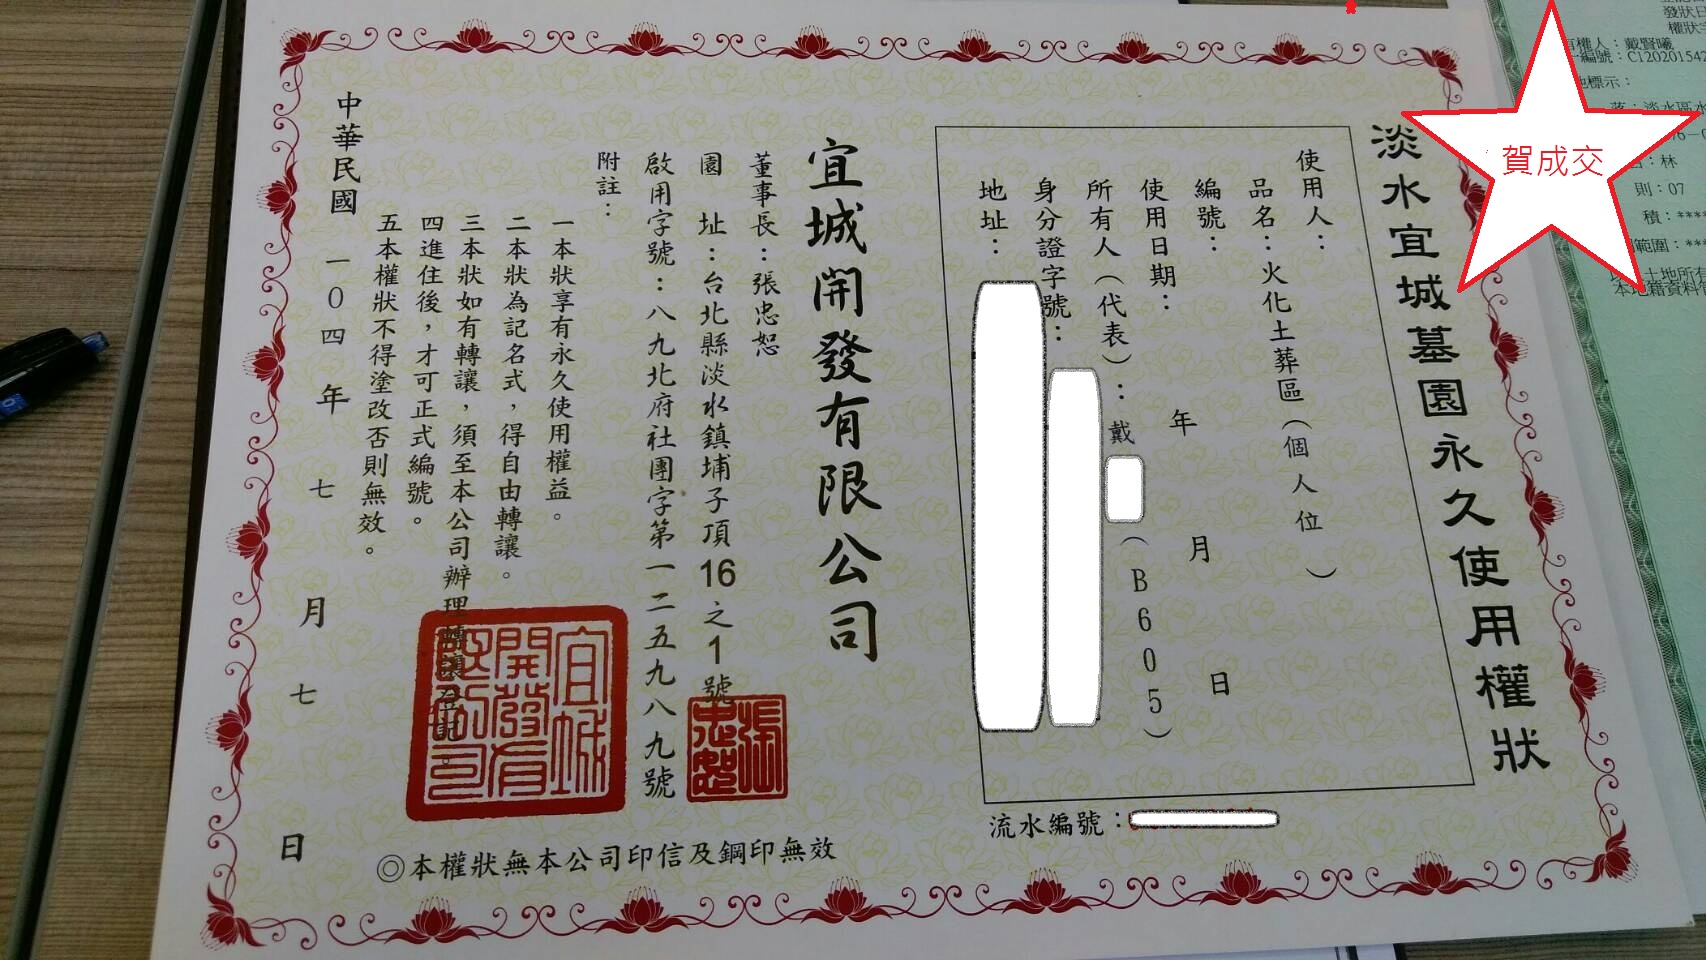 淡水宜城墓園永久使用權狀
使用人：
品名：火化土葬區（個人位）
編號：
使用日期：　年　月　日
所有人（代表）：戴（B6055）
身分證字號：
地址：
流水編號：
宜城開發有限公司
董事長：張忠恕
園　址：台北縣淡水鎮埔子頂16之1號
啟用字號：八九北府社團字第一二五九八九號
附註：
一本狀享有永久使用權益。
二本狀為記名式，得自由轉讓。
三本狀如有轉讓，須至本公司辦理轉讓登記。
四進住後，才可正式編號。
五本權狀不得塗改否則無效。
中華民國　一０四　年　七　月　七　日
◎本權狀無本公司印信及鋼印無效
宜城開發有限公司
張忠恕
賀成交
發狀日
權狀字
有權人：戴賢曦
編號：C12020154
地標示：
落：淡水區水
林
則：07
積：****
範圍：**